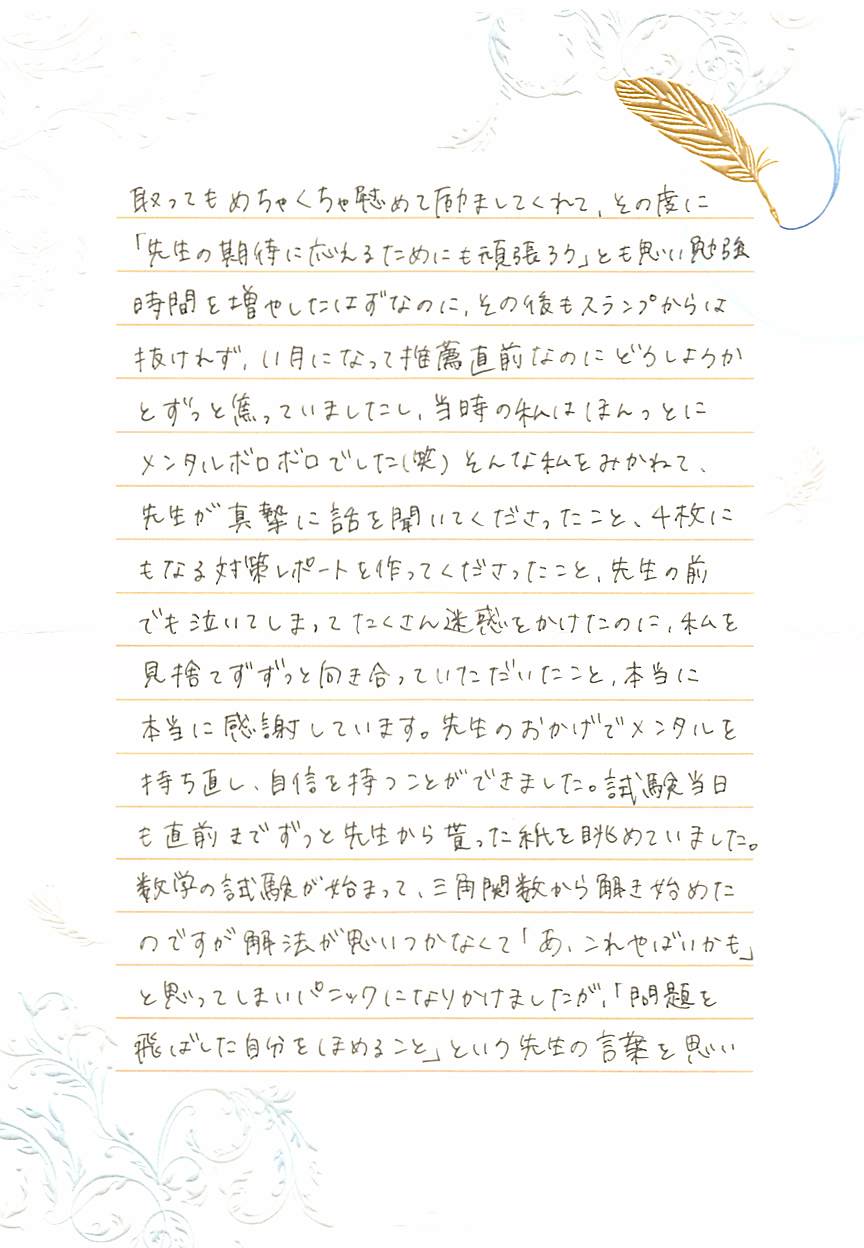 取ってもめちゃくちゃ慰めて励ましてくれて、その度に
「先生の期待に応えるためにも頑張ろう」とも思い勉強
時間を増やしたはずなのに、その後もスランプからは
抜けれず、11月になって推薦直前なのにどうしようか
とずっと焦っていましたし、当時の私はほんっとに
メンタルボロボロでした(笑) そんな私をみかねて、
先生が真摯に話を聞いてくださったこと、4枚に
もなる対策レポートを作ってくださったこと、先生の前
でも泣いてしまってたくさん迷惑をかけたのに、私を
見捨てずずっと向き合っていただいたこと、本当に
本当に感謝しています。先生のおかげでメンタルを
持ち直し、自信を持つことができました。試験当日
も直前までずっと先生から貰った紙を眺めていました。
数学の試験が始まって、三角関数から解き始めた
のですが解法が思いつかなくて「あ、これやばいかも」
と思ってしまいパニックになりかけましたが、「問題を
飛ばした自分をほめること」という先生の言葉を思い